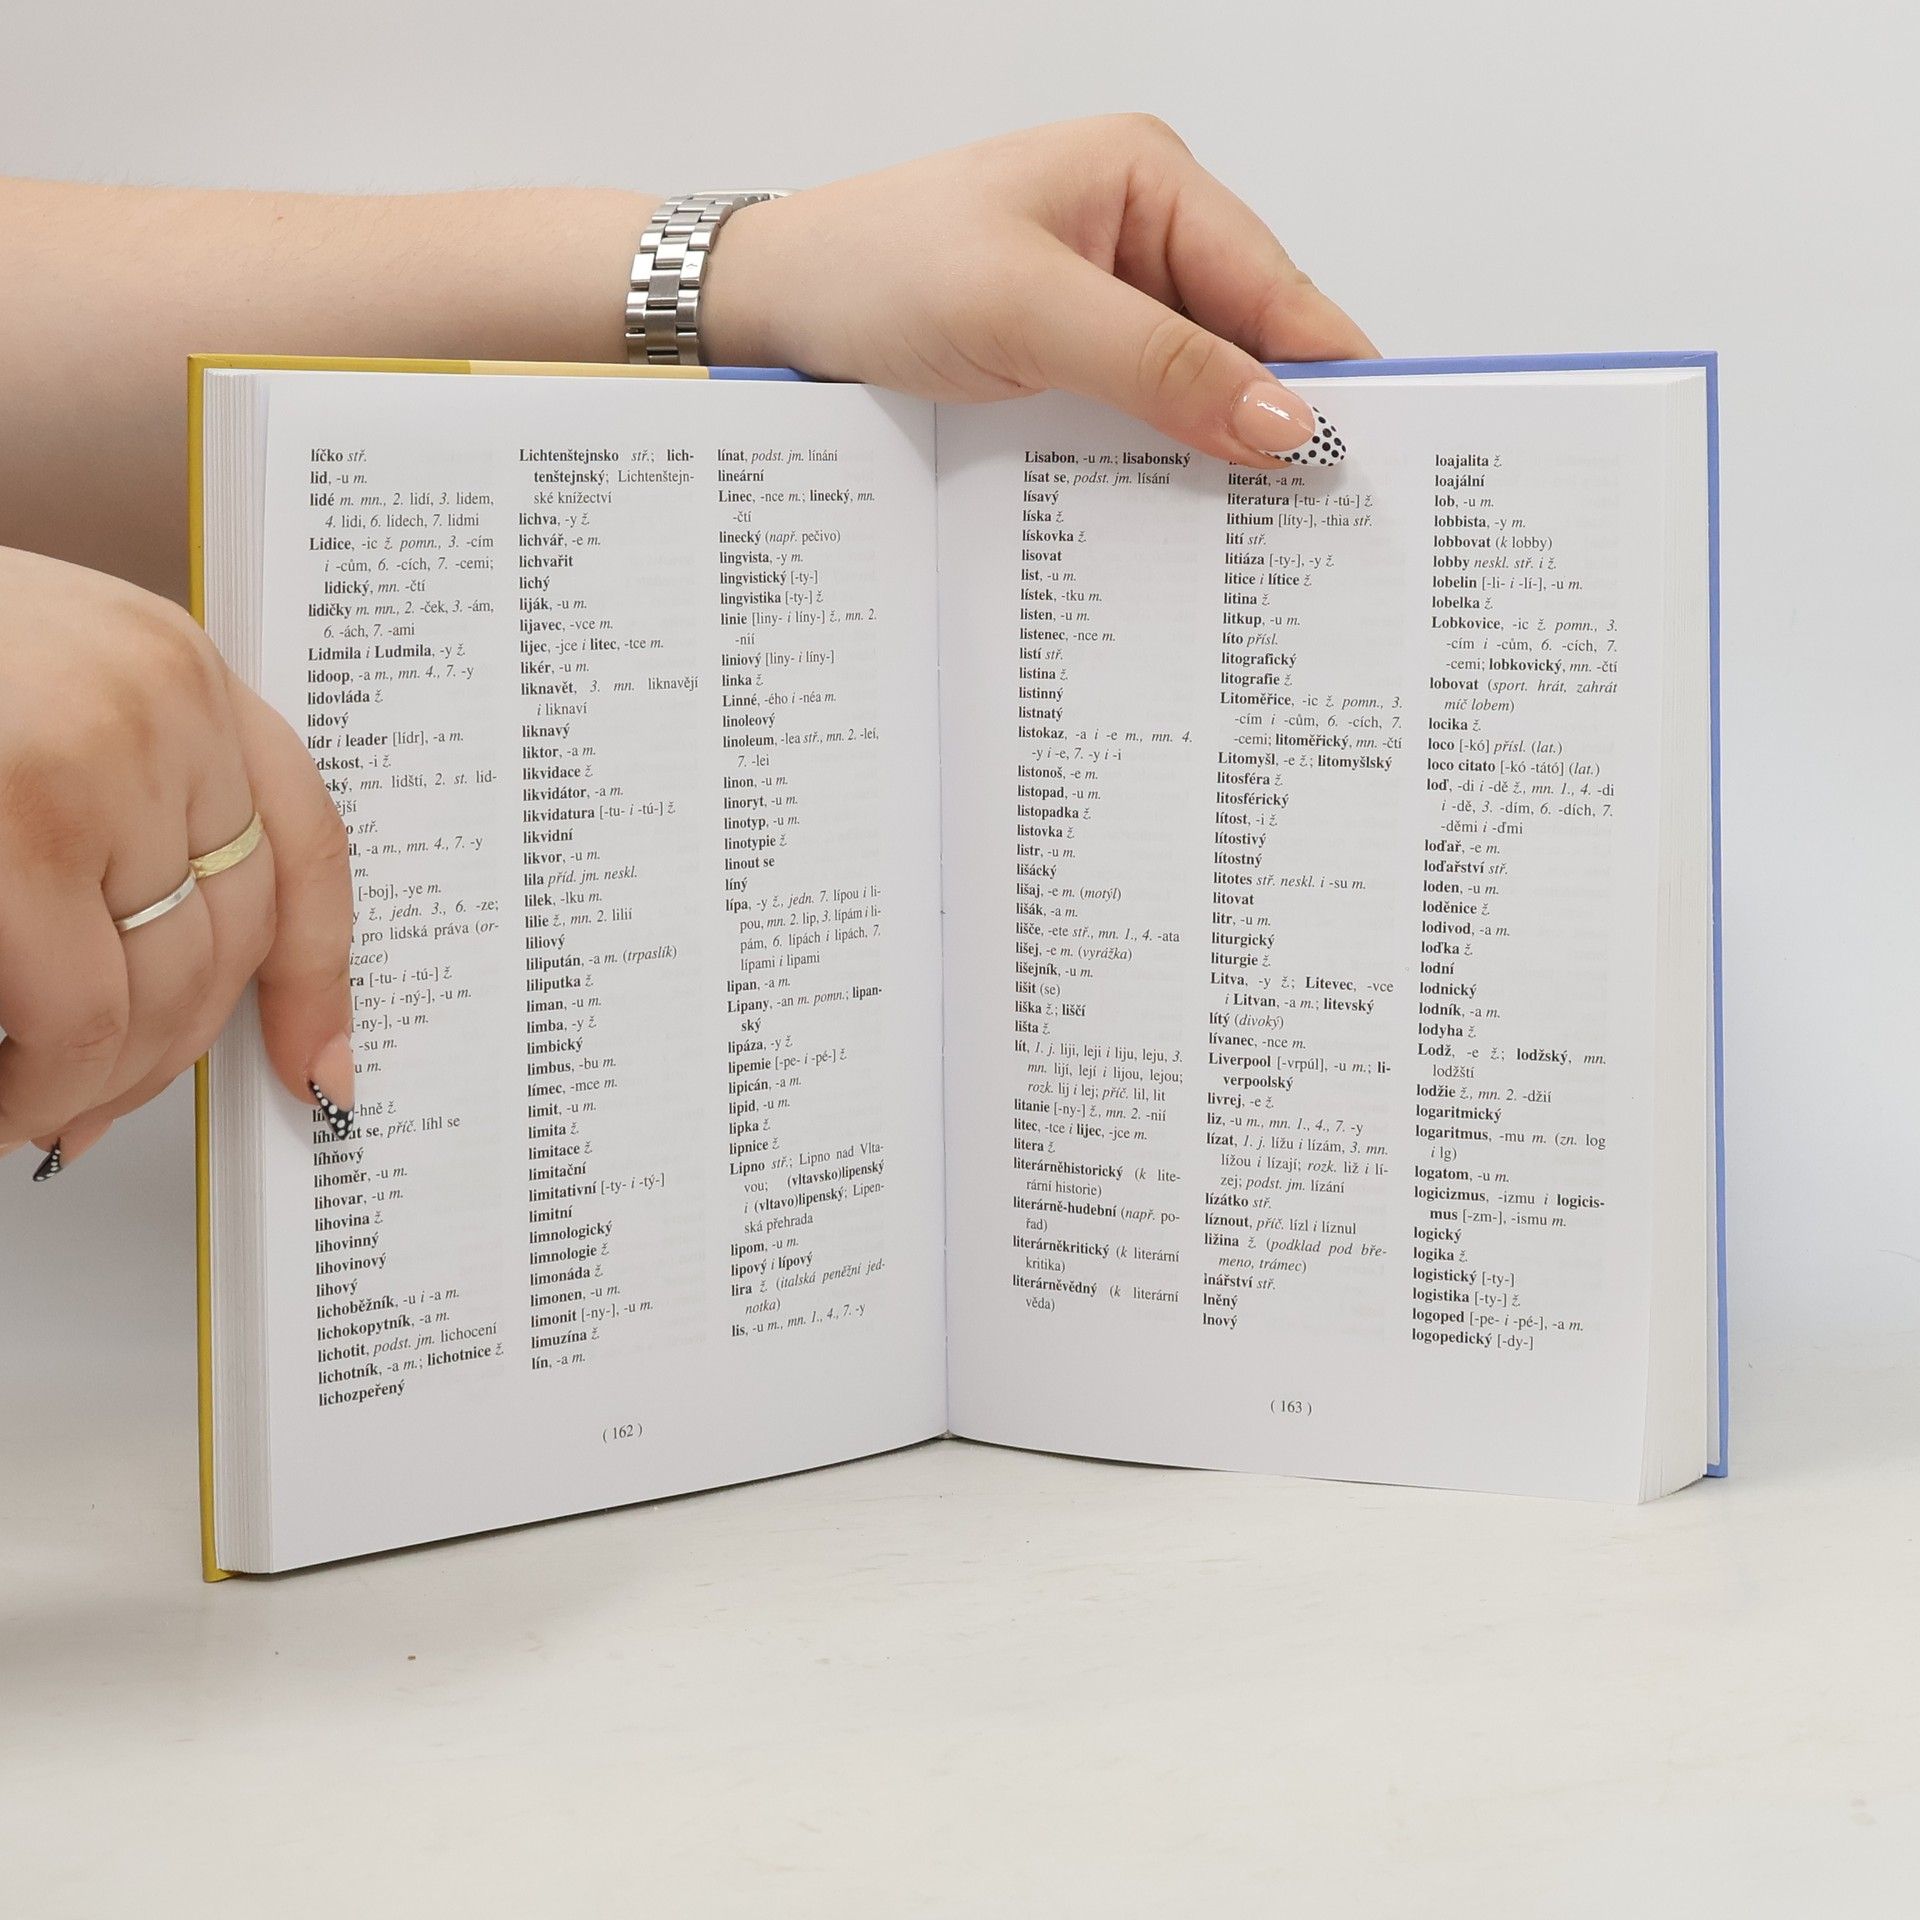 líčko stř.
lid, -u m.
lidé m. mn., 2. lidí, 3. lidem,
4. lidi, 6. lidech, 7. lidmi
Lidice, -ic ž. pomn., 3. -cím
i -cům, 6. -cích, 7. -cemi;
lidický, mn. -čtí
lidičky m. mn., 2. -ček, 3. -ám,
6. -ách, 7. -ami
Lidmila i Ludmila, -y ž.
lidoop, -a m., mn. 4., 7. -y
lidovláda ž.
lidový
lídr i leader [lídr], -a m.
idskost, -i ž.
ský, mn. lidští, 2. st. lid-
ější
o stř.
il, -a m., mn. 4., 7. -y
m.
[-boj], -ye m.
y ž., jedn. 3., 6. -ze;
pro lidská práva (or-
izace)
ra [-tu- i -tú-] ž.
[-ny- i -ný-], -u m.
[-ny-], -u m.
, -su m.
u m.
-hně ž.
se, příč. líhl se
líhňový
lihoměr, -u m.
lihovar, -u m.
lihovina ž.
lihovinný
lihovinový
lihový
lichoběžník, -u i -a m.
lichokopytník, -a m.
lichotit, podst. jm. lichocení
lichotník, -a m.; lichotnice ž.
lichozpeřený
Lichtenštejnsko stř.; lich-
tenštejnský; Lichtenštejn-
ské knížectví
lichva, -y ž.
lichvář, -e m.
lichvařit
lichý
liják, -u m.
lijavec, -vce m.
lijec, -jce i litec, -tce m.
likér, -u m.
liknavět, 3. mn. liknavějí
i liknaví
liknavý
liktor, -a m.
likvidace ž.
likvidátor, -a m.
likvidatura [-tu- i -tú-] ž.
likvidní
likvor, -u m.
lila příd. jm. neskl.
lilek, -lku m.
lilie ž., mn. 2. lilií
liliový
lilipután, -a m. (trpaslík)
liliputka ž.
liman, -u m.
limba, -y ž.
limbický
limbus, -bu m.
límec, -mce m.
limit, -u m.
limita ž.
limitace ž.
limitační
limitativní [-ty- i -tý-]
limitní
limnologický
limnologie ž.
limonáda ž.
limonen, -u m.
limonit [-ny-], -u m.
limuzína ž.
lín, -a m.
línat, podst. jm. línání
lineární
Linec, -nce m.; linecký, mn.
-čtí
linecký (např. pečivo)
lingvista, -y m.
lingvistický [-ty-]
lingvistika [-ty-] ž.
linie [liny- i líny-] ž., mn. 2.
-nií
liniový [liny- i líny-]
linka ž.
Linné, -ého i -néa m.
linoleový
linoleum, -lea stř., mn. 2. -leí,
7. -lei
linon, -u m.
linoryt, -u m.
linotyp, -u m.
linotypie ž.
linout se
líný
lípa, -y ž., jedn. 7. lípou i li-
pou, mn. 2. lip, 3. lípám i li-
pám, 6. lípách i lipách, 7.
lípami i lipami
lipan, -a m.
Lipany, -an m. pomn.; lipan-
ský
lipáza, -y ž.
lipemie [-pe- i -pé-] ž.
lipicán, -a m.
lipid, -u m.
lipka ž.
lipnice ž.
Lipno stř.; Lipno nad Vlta-
vou; (vltavsko)lipenský
i (vltavo)lipenský; Lipen-
ská přehrada
lipom, -u m.
lipový i lípový
lira ž. (italská peněžní jed-
notka)
lis, -u m., mn. 1., 4., 7. -y
( 162 )
Lisabon, -u m.; lisabonský
lísat se, podst. jm. lísání
lísavý
líska ž.
lískovka ž.
lisovat
list, -u m.
lístek, -tku m.
listen, -u m.
listenec, -nce m.
listí stř.
listina ž.
listinný
listnatý
listokaz, -a i -e m., mn. 4.
-y i -e, 7. -y i -i
listonoš, -e m.
listopad, -u m.
listopadka ž.
listovka ž.
listr, -u m.
lišácký
lišaj, -e m. (motýl)
lišák, -a m.
lišče, -ete stř., mn. 1., 4. -ata
lišej, -e m. (vyrážka)
lišejník, -u m.
lišit (se)
liška ž.; liščí
lišta ž.
lít, 1. j. liji, leji i liju, leju, 3.
mn. lijí, lejí i lijou, lejou;
rozk. lij i lej; příč. lil, lit
litanie [-ny-] ž., mn. 2. -nií
litec, -tce i lijec, -jce m.
litera ž.
literárněhistorický (k lite-
rární historie)
literárně-hudební (např. po-
řad)
literárněkritický (k literární
kritika)
literárněvědný (k literární
věda)
literát, -a m.
literatura [-tu- i -tú-] ž.
lithium [líty-], -thia stř.
lití stř.
litiáza [-ty-], -y ž.
litice i lítice ž.
litina ž.
litkup, -u m.
líto přísl.
litografický
litografie ž.
Litoměřice, -ic ž. pomn., 3.
-cím i -cům, 6. -cích, 7.
-cemi; litoměřický, mn. -čtí
Litomyšl, -e ž.; litomyšlský
litosféra ž.
litosférický
lítost, -i ž.
lítostivý
lítostný
litotes stř. neskl. i -su m.
litovat
litr, -u m.
liturgický
liturgie ž.
Litva, -y ž.; Litevec, -vce
i Litvan, -a m.; litevský
lítý (divoký)
lívanec, -nce m.
Liverpool [-vrpúl], -u m.; li-
verpoolský
livrej, -e ž.
liz, -u m., mn. 1., 4., 7. -y
lízat, 1. j. lížu i lízám, 3. mn.
lížou i lízají; rozk. liž i lí-
zej; podst. jm. lízání
lízátko stř.
líznout, příč. lízl i líznul
ližina ž. (podklad pod bře-
meno, trámec)
lnářství stř.
lněný
lnový
loajalita ž.
loajální
lob, -u m.
lobbista, -y m.
lobbovat (k lobby)
lobby neskl. stř. i ž.
lobelin [-li- i -lí-], -u m.
lobelka ž.
Lobkovice, -ic ž. pomn., 3.
-cím i -cům, 6. -cích, 7.
-cemi; lobkovický, mn. -čtí
lobovat (sport. hrát, zahrát
míč lobem)
locika ž.
loco [-kó] přísl. (lat.)
loco citato [-kó -tátó] (lat.)
loď, -di i -dě ž., mn. 1., 4. -di
i -dě, 3. -dím, 6. -dích, 7.
-děmi i -ďmi
loďař, -e m.
loďařství stř.
loden, -u m.
loděnice ž.
lodivod, -a m.
loďka ž.
lodní
lodnický
lodník, -a m.
lodyha ž.
Lodž, -e ž.; lodžský, mn.
lodžští
lodžie ž., mn. 2. -džií
logaritmický
logaritmus, -mu m. (zn. log
i lg)
logatom, -u m.
logicizmus, -izmu i logicis-
mus [-zm-], -ismu m.
logický
logika ž.
logistický [-ty-]
logistika [-ty-] ž.
logoped [-pe- i -pé-], -a m.
logopedický [-dy-]
( 163 )